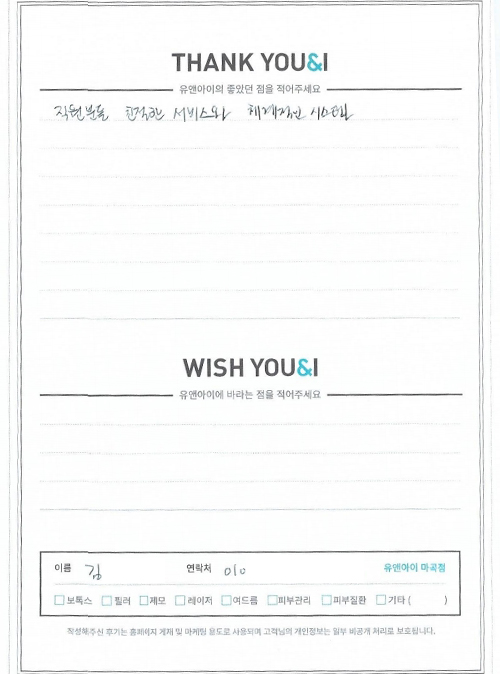 THANK YOU&I
유앤아이의 좋았던 점을 적어주세요
직원분들 친절한 서비스와 체계적인 시스템
WISH YOU&I
유앤아이에 바라는 점을 적어주세요
이름 김 연락처 010 유앤아이 마곡점
보톡스 필러 제모 레이저 여드름 피부관리 피부질환 기타 ( )
작성해주신 후기는 홈페이지 게재 및 마케팅 용도로 사용되며 고객님의 개인정보는 일부 비공개 처리로 보호됩니다.